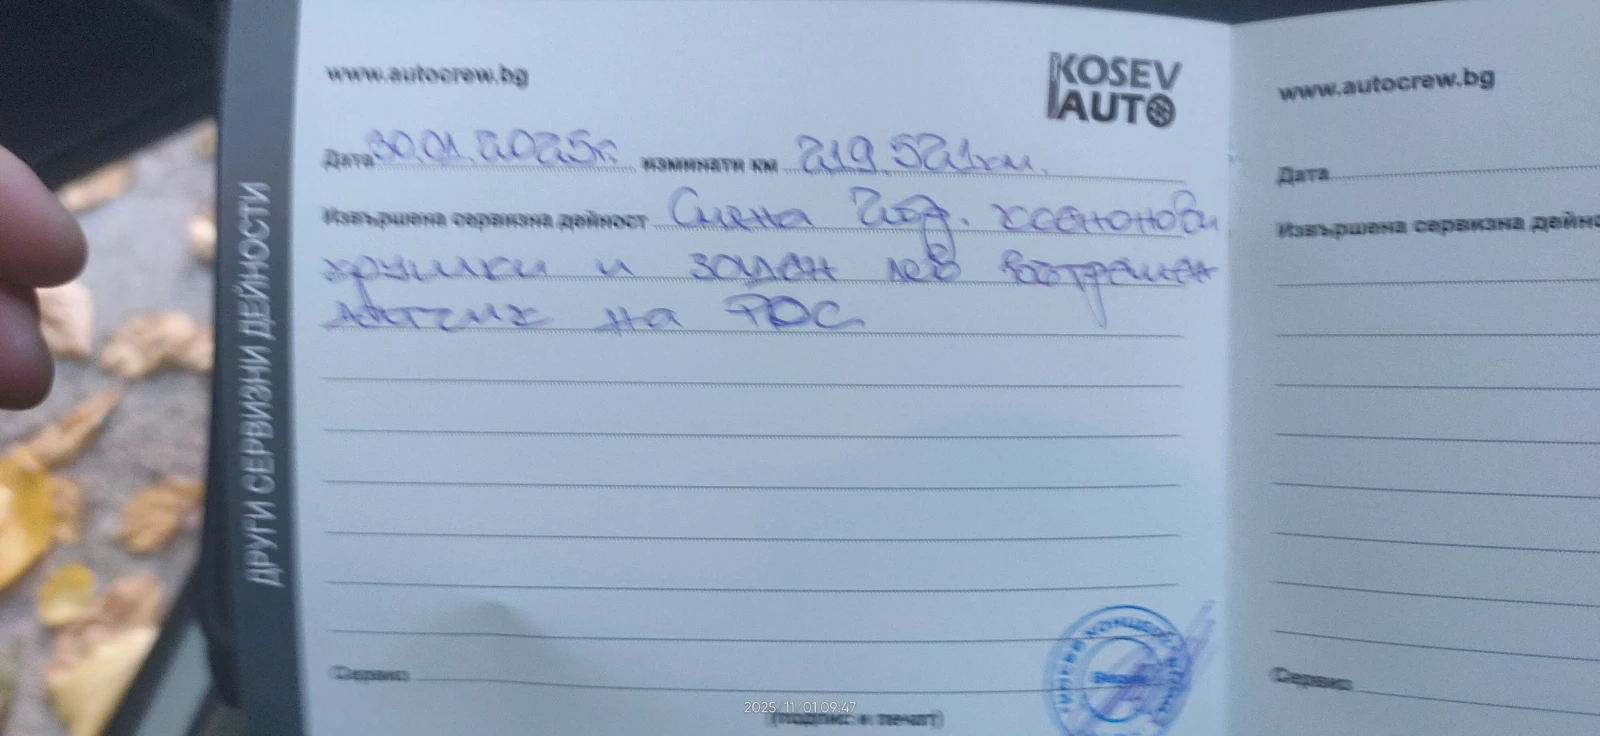 www.autocrew.bg
KOSEV
AUTO
Дата 30.01.2025г. изминати км 219.521км.
Извършена сервизна дейност Смяна 2бр. ксенонови
крушки и заден ляв вътрешен
датчик на PDC
Сервиз
(подпис и печат)
ДРУГИ СЕРВИЗНИ ДЕЙНОСТИ
www.autocrew.bg
Дата
Извършена сервизна дейно
Сервиз
2025 11 01 09:47